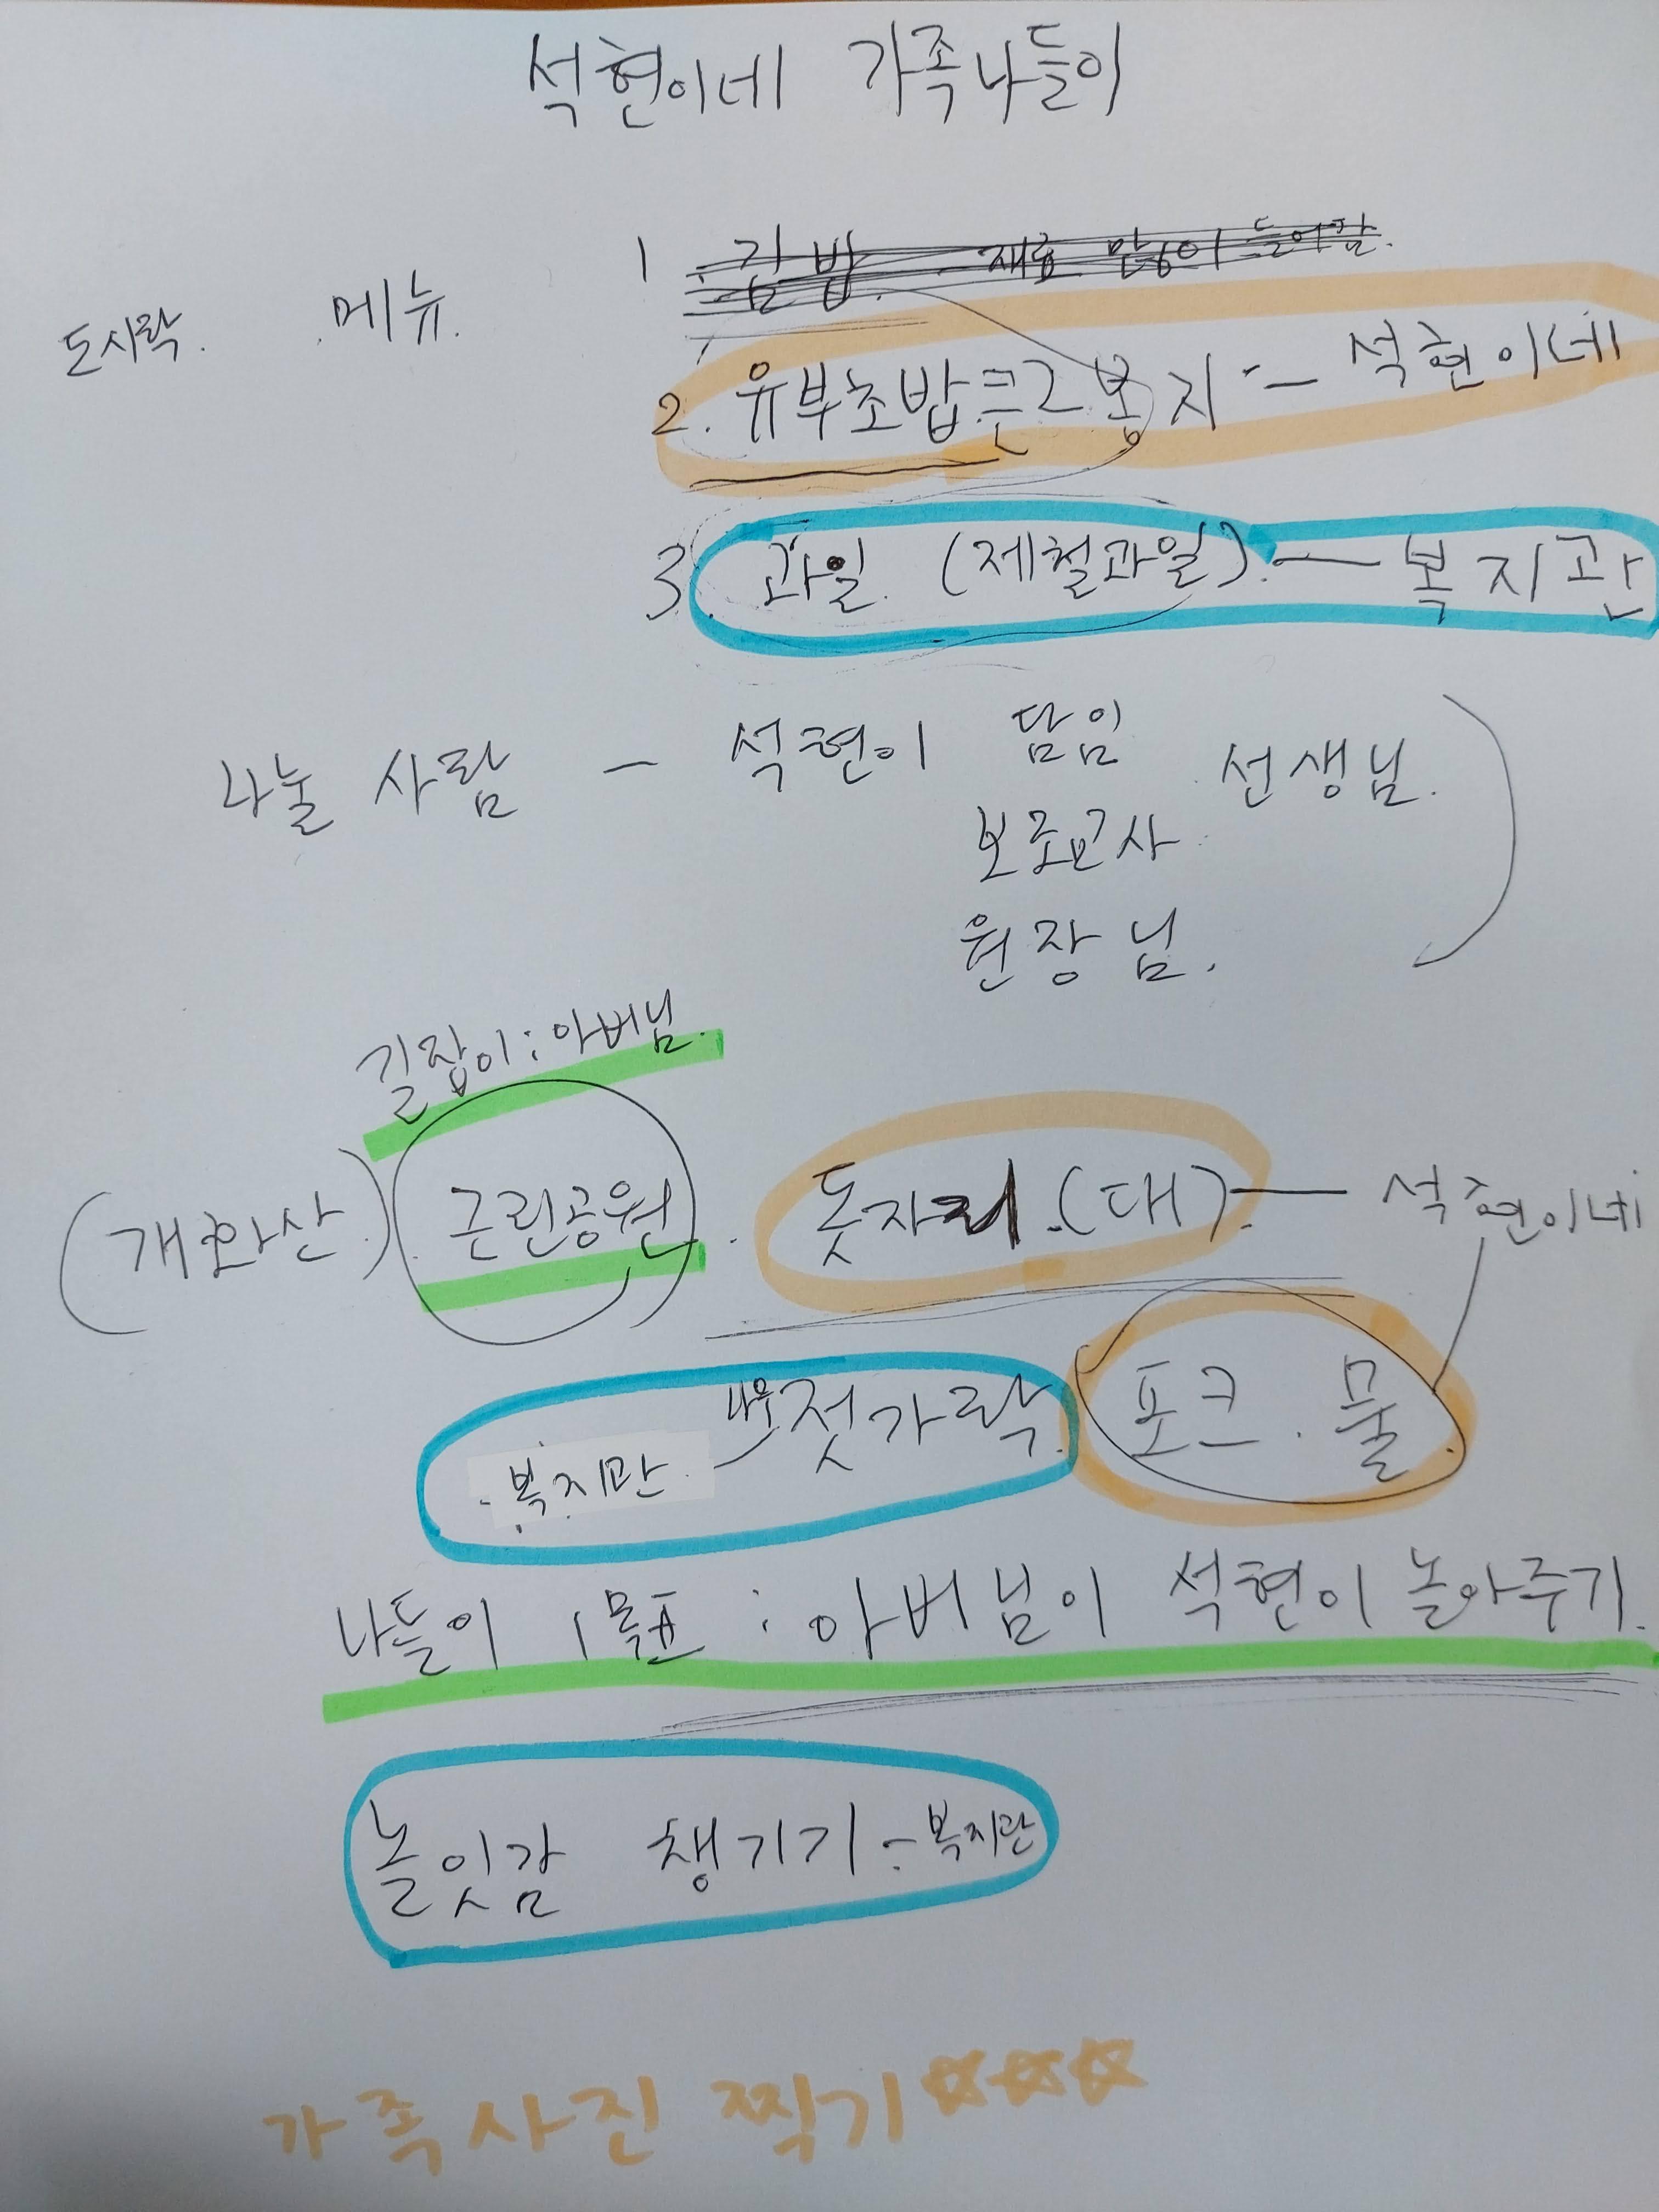 석현이네 가족나들이
도시락. 메뉴.
1. 김밥. 재료 많이 들어감.
2. 유부초밥큰2봉지 - 석현이네
3. 과일. (제철과일). — 복지관
나눌 사람 - 석현이 담임 선생님.
보조교사
원장님.
길잡이 : 아버님.
(개화산). 근린공원. 돗자리.(대). — 석현이네
젓가락. 포크. 물.
복지관
나들이 1목표 : 아버님이 석현이 놀아주기.
놀잇감 챙기기 - 복지관
가족사진 찍기☆☆☆